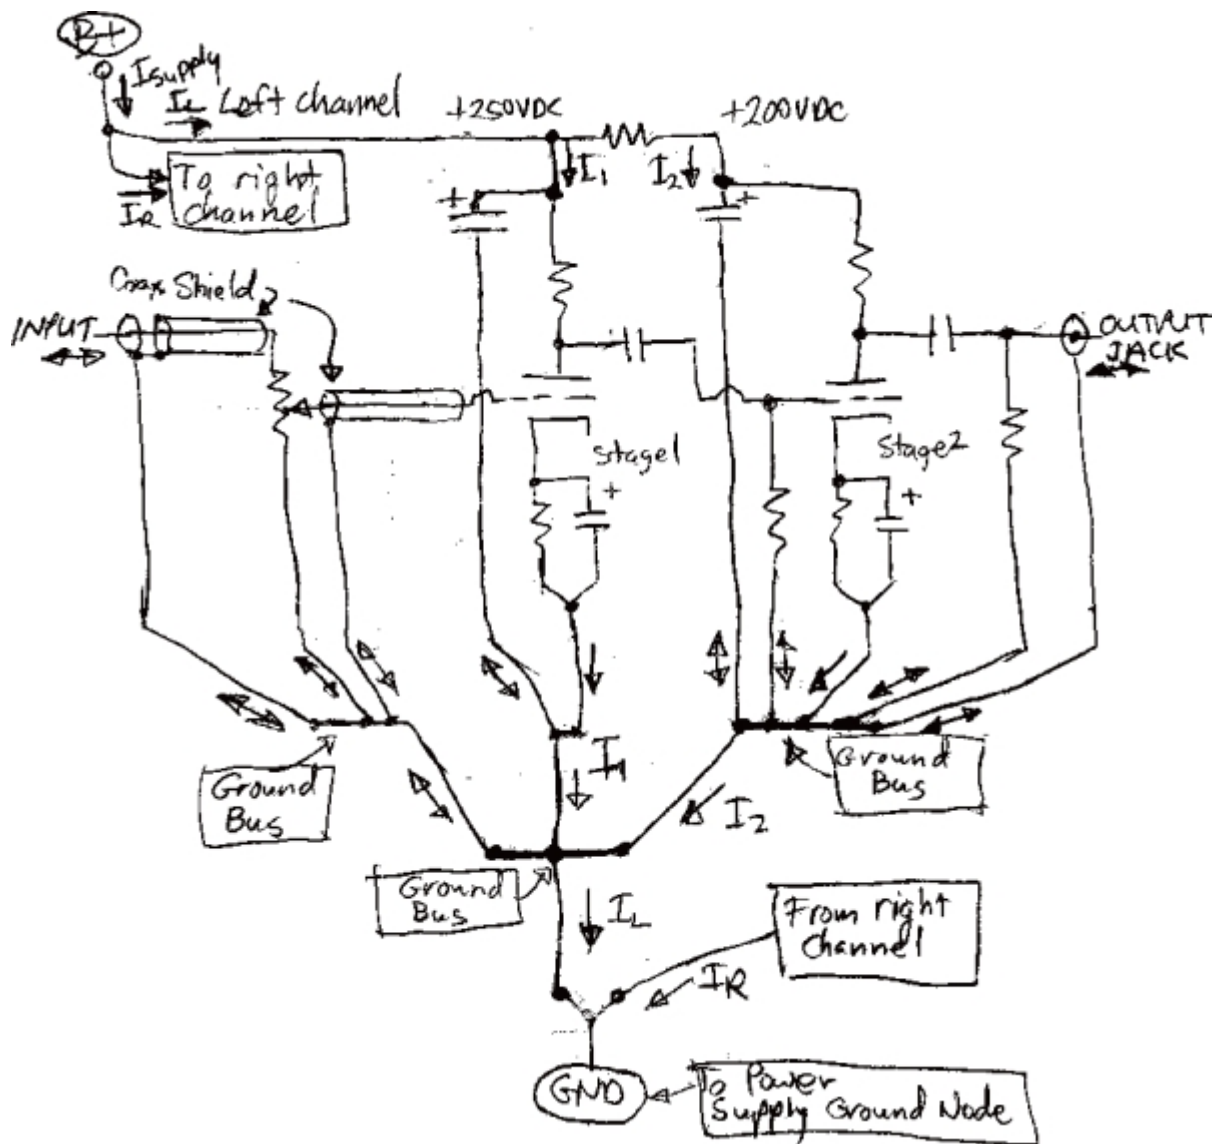 B+
Isupply
IL Left channel
+250VDC
+200VDC
I1
I2
To right
channel
IR
+
+
Coax Shield
INPUT
OUTPUT
JACK
Stage1
Stage2
+
+
I1
Ground
Bus
Ground
Bus
I2
Ground
Bus
IL
From right
Channel
IR
GND
To Power
Supply Ground Node